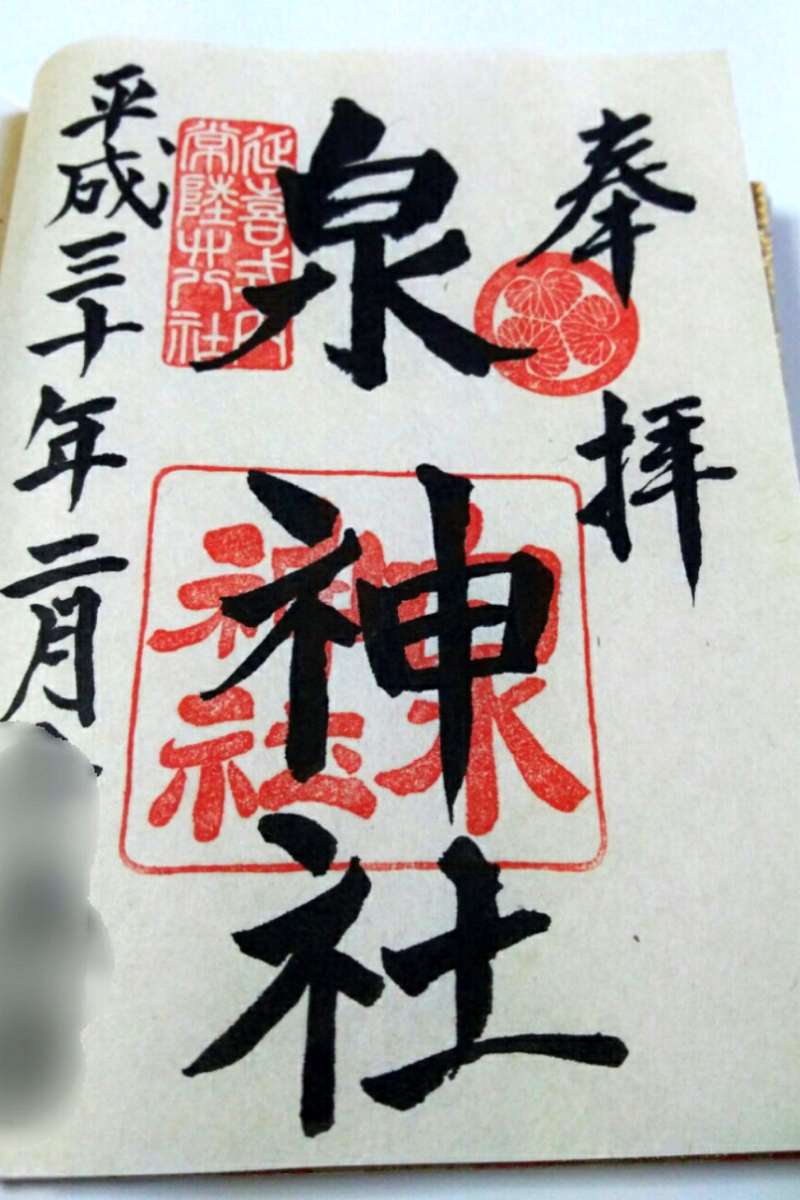 奉拝
泉神社
泉
神社
延喜式内
常陸廿八社
平成三十年二月